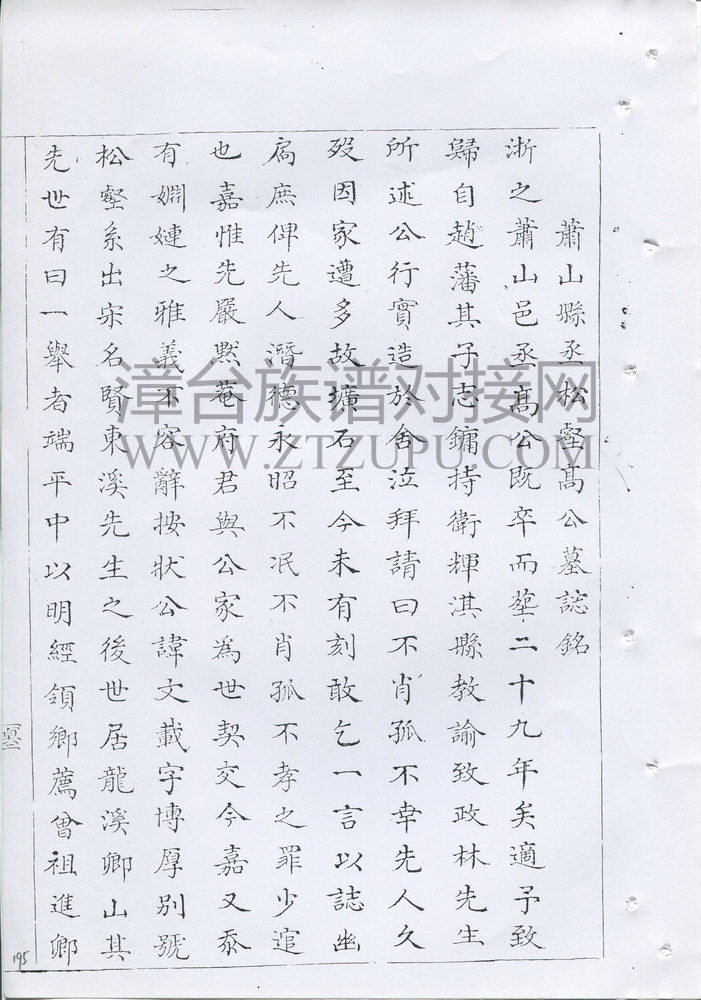 蕭山縣丞松壑髙公墓誌銘
浙之蕭山邑丞髙公既卒而塟二十九年矣適予致
歸自趙藩其子志鏞持衛輝淇縣教諭致政林先生
所述公行實造於舍泣拜請曰不肖孤不幸先人久
殁因家遭多故壙石至今未有刻敢乞一言以誌幽
扃庶俾先人潛德永昭不泯不肖孤不孝之罪少逭
也嘉惟先嚴黙菴府君與公家為世契交今嘉又忝
有婣婕之雅義不容辭按狀公諱文載字博厚别號
松壑系出宋名賢東溪先生之後世居龍溪卿山其
先世有曰一舉者端平中以明經領鄉薦曾祖進卿
漳台族谱对接网
WWW.ZTZUPU.COM
195